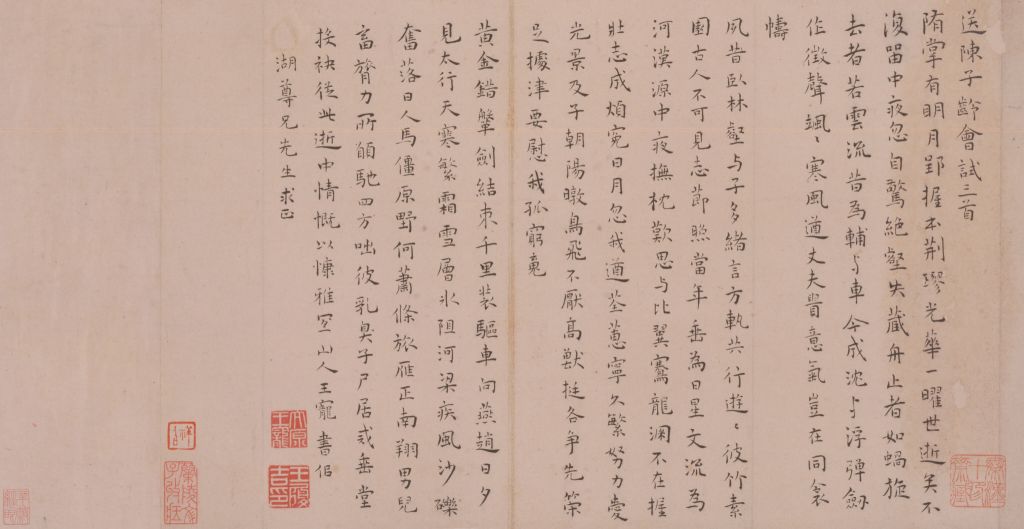 送陳子齡會試三首
隋掌有明月郢握本荆璆光華一曜世逝矣不
復留中夜忽自驚絕壑失藏舟止者如蝸旋
去者若雲流昔為輔與車今成沈與浮彈劒
作徵聲颯〻寒風遒丈夫貴意氣豈在同衾
幬
夙昔臥林壑与子多緒言方軌共行遊〻彼竹素
園古人不可見志節照當年垂為日星文流為
河漢源中夜撫枕歎思与比翼騫龍淵不在握
壯志成煩冤日月忽我遒荃蕙寧久繁努力愛
光景及子朝陽暾鳥飛不厭高獸挺各争先榮
足據津要慰我孤窮魂
黃金錯鞶劍結束千里裝驅車向燕趙日夕
見太行天寒繁霜雪層冰阻河梁疾風沙礫
奮落日人馬僵原野何蕭條旅雁正南翔男兒
富膂力所願馳四方咄彼乳臭子尸居戒垂堂
挨袂從此逝中情慨以慷雅宜山人王寵書侶
湖尊兄先生求正
太原王寵
王履吉印